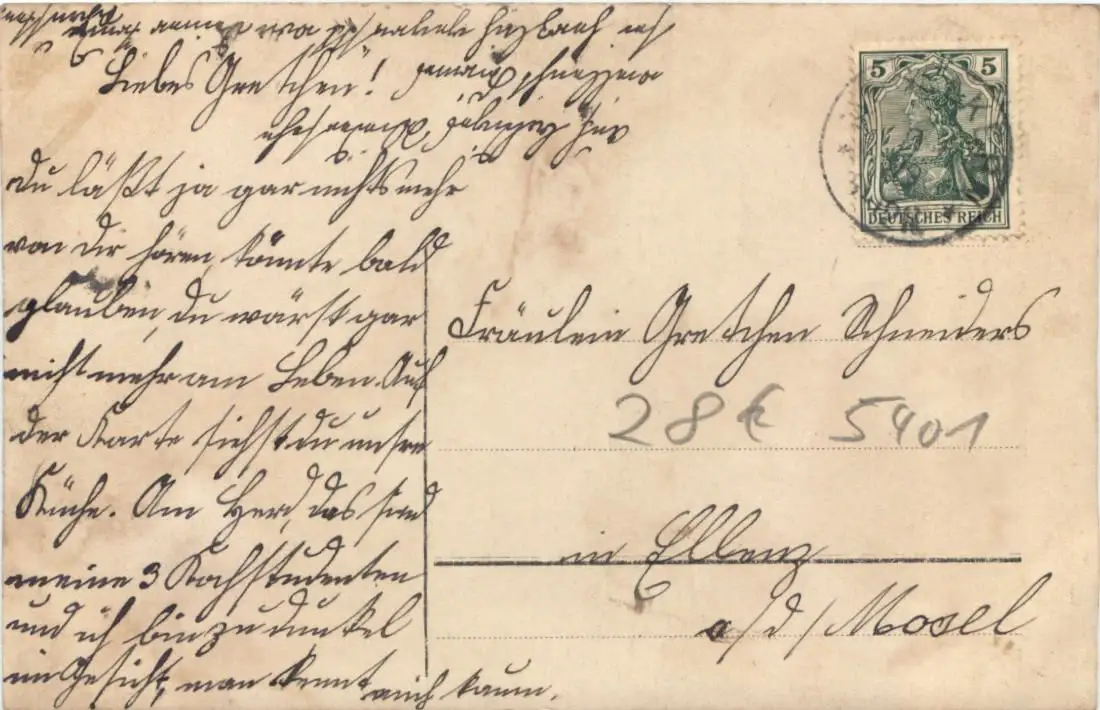 Liebes Gretchen!
Du läßt ja gar nichts mehr
von Dir hören, könnte bald
glauben, Du wärst gar
nicht mehr am Leben. Auf
der Karte siehst du unsre
Küche. Am Herd, das sind
meine 3 Kochstudenten
und ich bin zu dunkel
im Gesicht, man kennt mich kaum.
5 5
DEUTSCHES REICH
Fräulein Gretchen Schneiders
28 € 5401
in Ellenz
a/d/Mosel